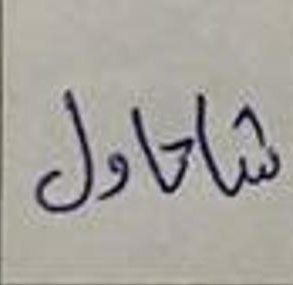 شاحاول